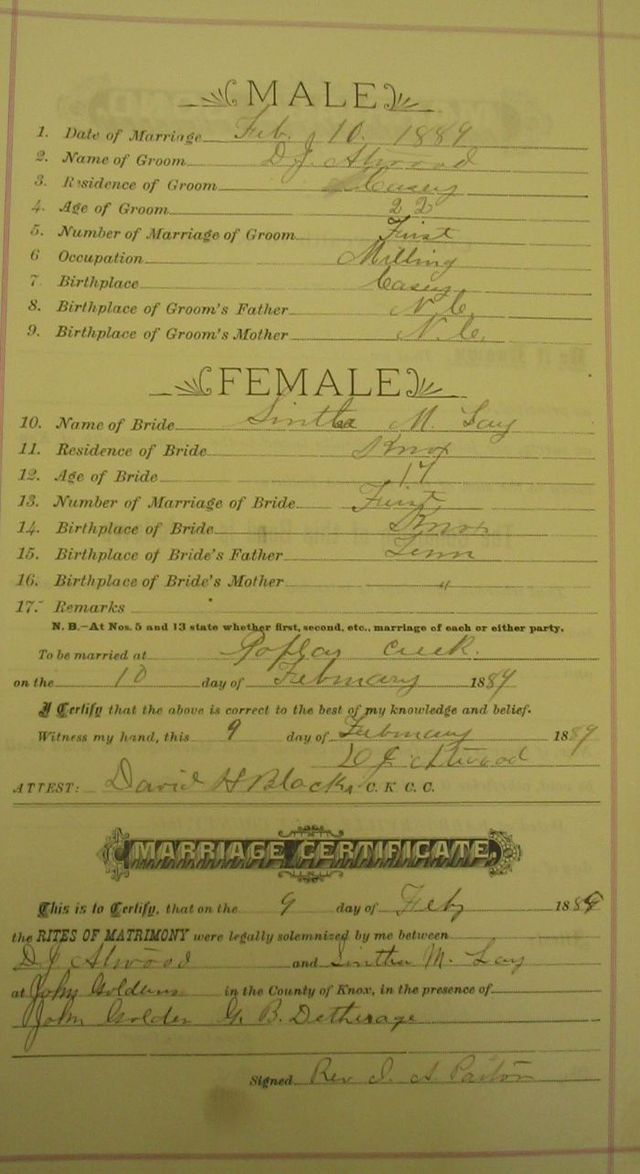 MALE
1. Date of Marriage Feb. 10. 1889
2. Name of Groom D. J. Atwood
3. Residence of Groom Casey
4. Age of Groom 22
5. Number of Marriage of Groom First
6 Occupation Milling
7. Birthplace Casey
8. Birthplace of Groom's Father N. C.
9. Birthplace of Groom's Mother N. C.
FEMALE
10. Name of Bride Sintha M. Lay
11. Residence of Bride Knox
12. Age of Bride 17
13. Number of Marriage of Bride First
14. Birthplace of Bride Knox
15. Birthplace of Bride's Father Tenn
16. Birthplace of Bride's Mother "
17. Remarks
N. B.—At Nos. 5 and 13 state whether first, second, etc., marriage of each or either party.
To be married at Poplar Creek.
on the 10 day of February 1889
I Certify that the above is correct to the best of my knowledge and belief.
Witness my hand, this 9 day of February 1889
D J Atwood
ATTEST: David H Black, C. K. C. C.
MARRIAGE CERTIFICATE.
This is to Certify, that on the 9 day of Feby 1889
the RITES OF MATRIMONY were legally solemnized by me between
D. J. Atwood and Sintha M. Lay
at John Goldens in the County of Knox, in the presence of
John Golden G. B. Detherage
Signed Rev